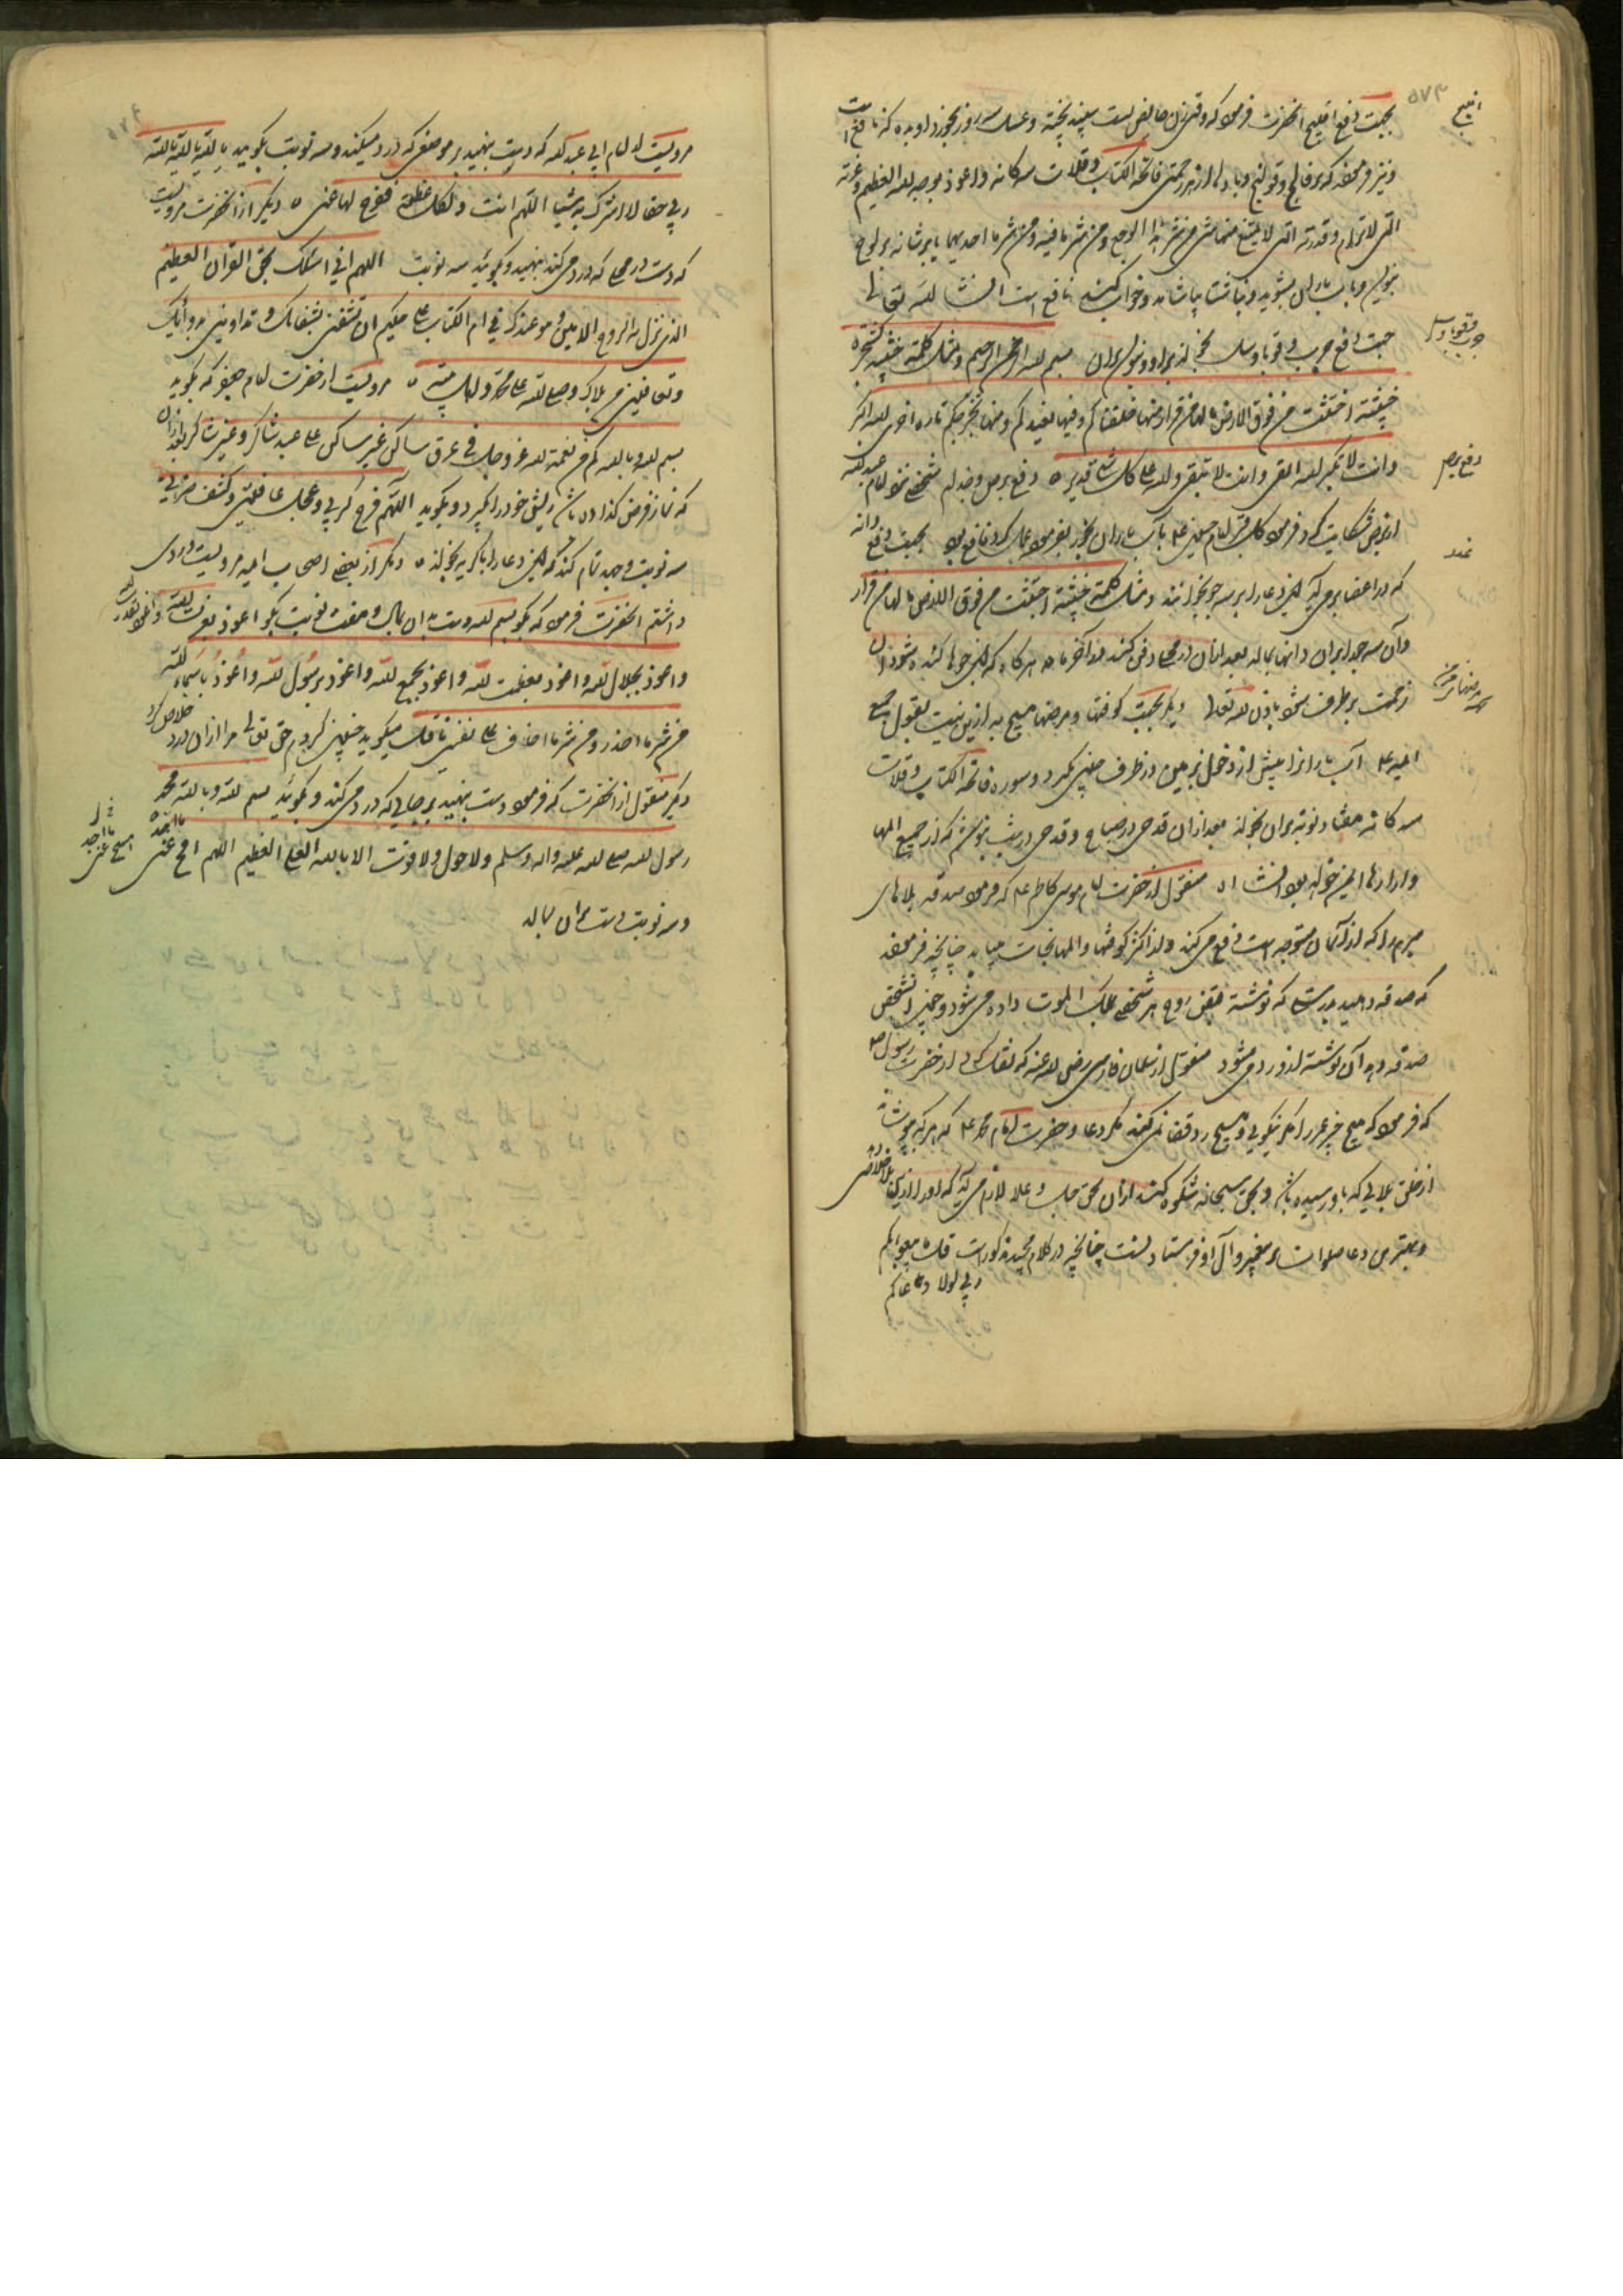 بجهت دفع افلیج آنحضرت فرمود که وقتی زن حایض است سپند پخته و عسل سه روز بخورد او بده که نافع است
و نیز فرمودند که بر فالج و قولنج و بادها از هر زحمتی فاتحة الکتاب و قلات سه کانه و اعوذ بوجه الله العظیم و عزته
التی لا ترام و قدرته التی لا یمتنع منها شی من شر هذا الوجع و من شر ما فیه و من شر ما اجد بر لوح
بنویس و بآب باران بشوید و ناشتا بیاشامد و خواب کنید نافع است انشا الله تعالی
جهت دفع جرب و قوبا و بخواند برو و بنویس بران بسم الله الرحمن الرحیم و مثل کلمة خبیثة کشجرة
خبیثة اجتثت من فوق الارض ما لها من قرار منها خلقناکم و فیها نعیدکم و منها نخرجکم تارة اخری الله اکبر
وانت لا تکبر الله یبقی وانت لا تبقی والله علی کل شی قدیر ه دفع برص شخصی نزد امام عبد الله
از برص شکایت کرد فرمود کل قبر امام حسین ع بآب باران بخور بفرموده عمل کرد نافع بود بجهت دفع دانه
که در اعضا برمی آید این دعا را بر سه جو بخوانند و مثل کلمة خبیثة اجتثت من فوق الارض ما لها من قرار
و آن سه جو را بران دانها بماند بعد ازان در جای دفن کنند در آخر ماه هر کاه که این جوها کنده شود آن
زحمت بر طرف شود باذن الله تعالی دیگر بجهت کوفتها و مرضها هیچ به ازین نیست بقول جمیع
ائمه ع آب باران را پیش از دخول بزمین در ظرف چینی کیرد و سوره فاتحة الکتاب و قلات
سه کانه هفتاد نوبه بران بخواند بعد ازان قدحی در صباح و قدحی در شب بنوشد که از جمیع المها
و ازارها ایمن خواهد بود انشا الله منقول از حضرت امام موسی کاظم ع که فرمود صدقه بلاهای
مبرم را که از آسمان متوجه است دفع می کند و از اکثر کوفتها و المها نجات میابد چنانچه فرمودند
که صدقه دهید بدرستی که نوشته قبض روح هر شخصی بملک الموت داده می شود و چون آن شخص
صدقه دهد آن نوشته از و رد میشود منقول از سلمان فارسی رضی الله عنه که نقل کرد از حضرت رسول ص
که فرمود که هیچ چیز عمر را مکر نیکویی و هیچ رد قضا نمی کند مکر دعا و حضرت امام محمد ع که هر که بپوشاند
از خلق بلایی که باو رسیده باشد و بحق سبحانه شکوه کند ازان بحق جل و علا لازم می آید که او را ازین بلا خلاصی دهد
و بهترین دعا صلوات بر پیغمبر و آل او فرستادنست چنانچه در کلام مجید مذکور است قل ما یعبوا بکم
ربی لولا دعاءکم
افلیج
جرب و قوبا
دفع برص
غدد
جمیع مرضها
٥٧٣
مرویست از امام ابی عبد الله که دست بنهید بر موضعی که درد میکند و سه نوبت بکویید بالله بالله بالله
ربی حقا لا اشرک به شیئا اللهم انت لکل عظیمة ففرج لها عنی ه دیگر از آنحضرت مرویست
که دست در جای که درد می کند بنهید و بکویید سه نوبت اللهم انی اسئلک بحق القرآن العظیم
الذی نزل به الروح الامین و هو عندک فی ام الکتاب علی حکیم ان تشفینی بشفائک و تداوینی بدوائک
و تعافینی من بلائک و صلی الله علی محمد و اهل بیته ه مرویست از حضرت امام جعفر که بکوید
بسم الله و بالله کم من نعمة لله عز و جل فی عرق ساکن غیر ساکن علی عبد شاکر و غیر شاکر بعد ازان
که نماز فرض کذارده باشد ریش خود را بکیرد و بکوید اللهم فرج کربتی و عجل عافیتی و کشف ضری
سه نوبت و جهد تمام کند که این دعا را باکریه بخواند ه دیگر از بعضی اصحاب ائمه مرویست دردی
داشتم آنحضرت فرمود که بکو بسم الله و دست بدان بمال و هفت نوبت بکو اعوذ بعزت الله و اعوذ بقدرت الله
و اعوذ بجلال الله و اعوذ بعظمت الله و اعوذ بجمع الله و اعوذ برسول الله و اعوذ باسماء الله
من شر ما احذر و من شر ما اخاف علی نفسی ناقل میکوید چنین کردم حق تعالی مرا ازان درد خلاص کرد
دیگر منقول از آنحضرت که فرمود دست بنهید بر جایی که درد می کند و بکویید بسم الله و بالله محمد
رسول الله صلی الله علیه و اله و سلم و لا حول و لا قوت الا بالله العلی العظیم اللهم امسح عنی ما اجد
و سه نوبت دست بران بمالد
امسح عنی ما اجد